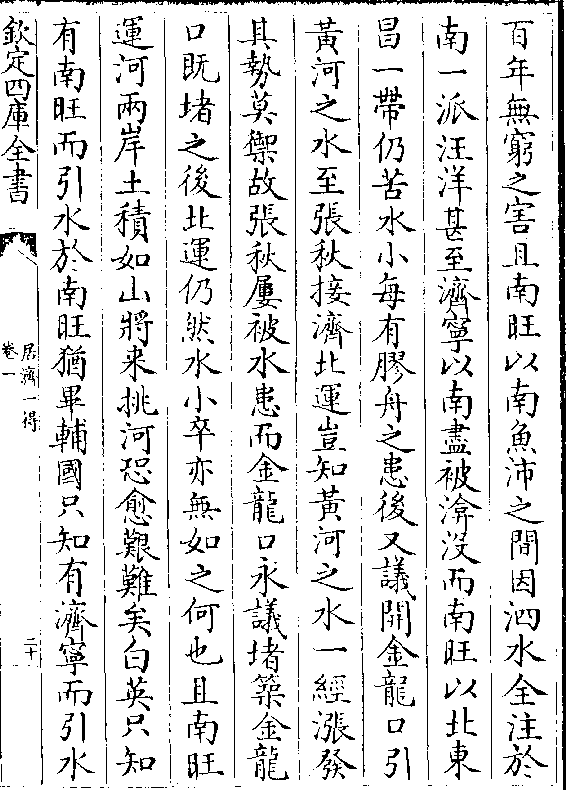 百年無窮之害且南旺以南魚沛之間因泗水全注於
南一派汪洋甚至濟寧以南盡被渰沒而南旺以北東
昌一帶仍苦水小每有膠舟之患後又議開金龍口引
黃河之水至張秋接濟北運豈知黃河之水一經漲發
其勢莫禦故張秋屢被水患而金龍口永議堵築金龍
口既堵之後北運仍然水小卒亦無如之何也且南旺
運河兩岸土積如山將来挑河恐愈艱難矣白英只知
有南旺而引水於南旺猶畢輔國只知有濟寧而引水
欽定四庫全書
居濟一得
卷一
二十